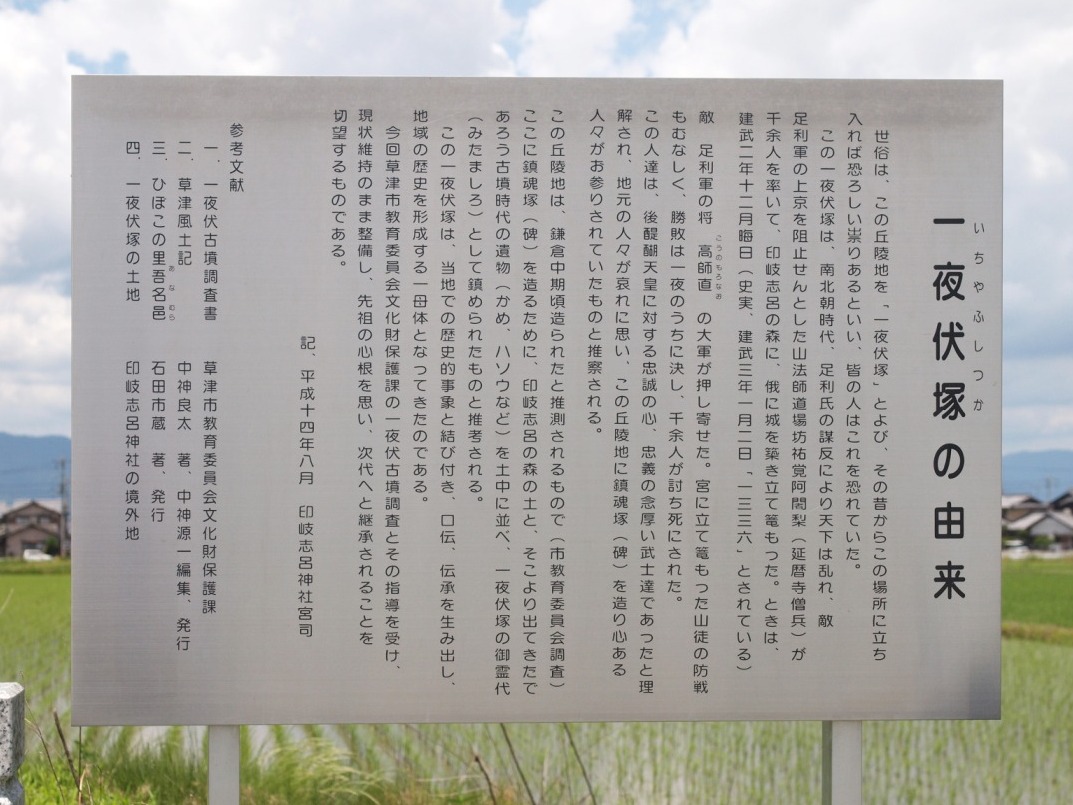 一夜伏塚の由来
いちやふしつか
世俗は、この丘陵地を「一夜伏塚」とよび、その昔からこの場所に立ち
入れば恐ろしい祟りあるといい、皆の人はこれを恐れていた。
この一夜伏塚は、南北朝時代、足利氏の謀反により天下は乱れ、敵
足利軍の上京を阻止せんとした山法師道場坊祐覚阿闍梨（延暦寺僧兵）が
千余人を率いて、印岐志呂の森に、俄に城を築き立て篭もった。ときは、
建武二年十二月晦日（史実、建武三年一月二日「一三三六」とされている）
敵　足利軍の将　高師直　の大軍が押し寄せた。宮に立て篭もった山徒の防戦
こうのもろなお
もむなしく、勝敗は一夜のうちに決し、千余人が討ち死にされた。
この人達は、後醍醐天皇に対する忠誠の心、忠義の念厚い武士達であったと理
解され、地元の人々が哀れに思い、この丘陵地に鎮魂塚（碑）を造り心ある
人々がお参りされていたものと推察される。
この丘陵地は、鎌倉中期頃造られたと推測されるもので（市教育委員会調査）
ここに鎮魂塚（碑）を造るために、印岐志呂の森の土と、そこより出てきたで
あろう古墳時代の遺物（かめ、ハソウなど）を土中に並べ、一夜伏塚の御霊代
（みたましろ）として鎮められたものと推考される。
この一夜伏塚は、当地での歴史的事象と結び付き、口伝、伝承を生み出し、
地域の歴史を形成する一母体となってきたのである。
今回草津市教育委員会文化財保護課の一夜伏古墳調査とその指導を受け、
現状維持のまま整備し、先祖の心根を思い、次代へと継承されることを
切望するものである。
記、平成十四年八月　印岐志呂神社宮司
参考文献
一、一夜伏古墳調査書　草津市教育委員会文化財保護課
二、草津風土記　中神良太　著、中神源一編集、発行
三、ひぼこの里吾名邑　石田市蔵　著、発行
あなむら
四、一夜伏塚の土地　印岐志呂神社の境外地